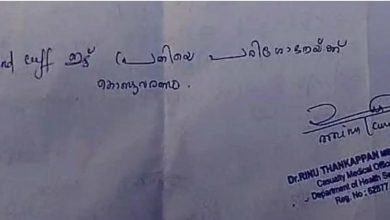 ഇട്ട് പ്രതിയെ പരിശോധനയ്ക്ക്
കൊണ്ടുവരണം.
Dr.RINU THANKAPPAN
Casualty Medical Offic
Department of Health Se
Reg. No : 62877